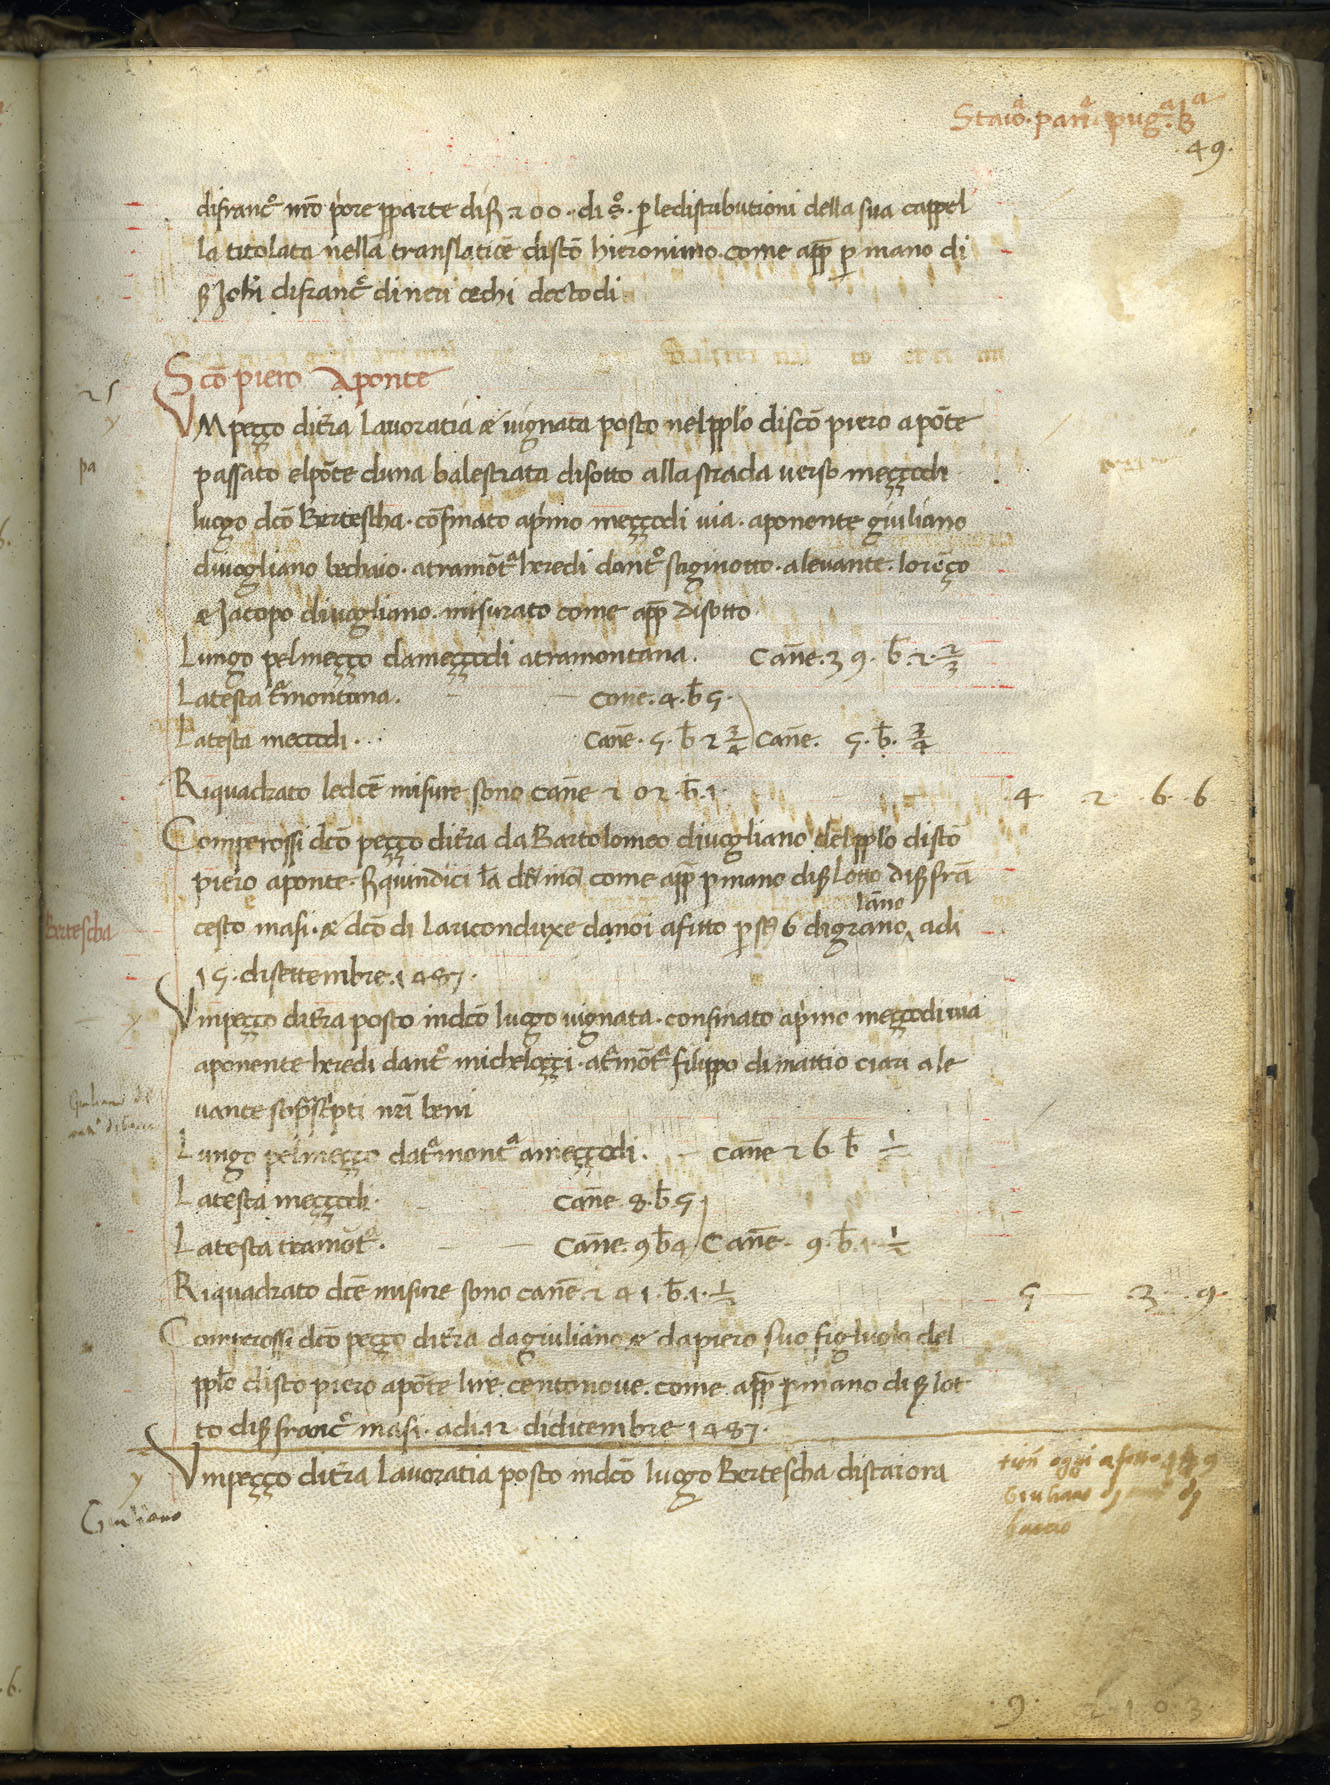 Staioª. panª. pugª. bª
.49.
difrancº nr̄o priore pparte di f 200. di sº. p ledistributioni della sua cappel
la titolata nella translatiōe discō hieronimo. come app p mano di
s Johi di francº di neri cechi decto di
Scō piero Aponte
25
y
VM peçço dit̄ra lavoratia æ vignata posto nelpplō discō piero apōte
pa
passato elpōte duna balestrata disotto alla strada verso meççodi
luogo dcō Bertescha. cōfinato aprimo meççodi via. aponente giuliano
divogliano bechaio. atramōtª heredi dantº stiginotto. alevante. lorēço
æ Jacopo divogliano. misurato come app disotto.
Lungo pelmeççο dameççodi atramontana. Cañe. 39. b̄. 2. 2/3
Latesta tªmontana. Cane. 4. b̄ 5.
Latesta meççodi. Cañe. 5. b̄ 2 3/4 Cañe. 5. b̄. 3/4
Riquadrato ledcē misure sono cañe 202. b̄. 1. 4 2 6 6
Comperossi dcō peçço dit̄ra da Bartolomeo divogliano delpplō discō
piero aponte. f quindici la dr̄i nr̄i come app p mano di s Lotto di s frā
Bertescha
cesco masi. æ dcō di lariconduxe danoi afitto p st̄ 6 digrano lāno adi
15. disettembre. 1487.
y
Vnpeçço dit̄ra posto indcō luogo vignata. confinato aprimo meççodi via
aponente heredi dantº micheloççi. atªmōtª filippo di mattio ciari ale
Giuliano di
vante soprascpti nr̄i beni
Lungo pelmeççο datªmontª ameççodi. Cañe 26 b̄ 1/2
Latesta meççodi. Cañe. 8. b̄ 5
Latesta tramōtª. Cañe. 9 b̄ 4 Cañe. 9. b̄. 1. 1/2
Riquadrato dcē misure sono cañe. 241. b̄. 1. 1/2 5 3. 9.
Comperossi dcō peçço dit̄ra dagiuliano æ dapiero suo figluolo del
pplō discō piero apōte lire centonove. come app p mano di s lot
to di s francº masi. adi. 12. didicembre 1487.
y
Vnpeçço dit̄ra lavoratia posto indcō luogo Bertescha distaiora
Giuliano
tiēn oggi afitto
Giuliano di
baccio
.9. 2. 1 0. 3.